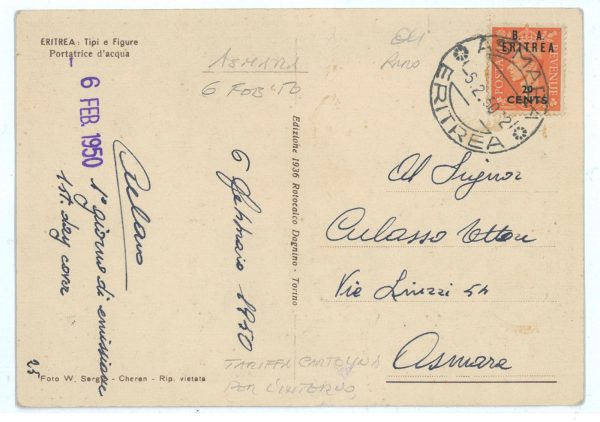 ERITREA: Tipi e Figure
Portatrice d'acqua
ASMARA
6 FEB '50
RARO
B. A.
ERITREA
20
CENTS
POSTA
REVENUE
ASMARA
6.2.50
ERITREA
- 6 FEB 1950
1° giorno di emissione
1st. day cover
6 Febbraio 1950
Edizione 1936 Rotocalco Dagnino - Torino
Al Signor
Culasso Ettore
Via
54
Asmara
TARIFFA CARTOLINA
PER L'INTERNO
25
Foto W. - Cheren - Rip. vietata